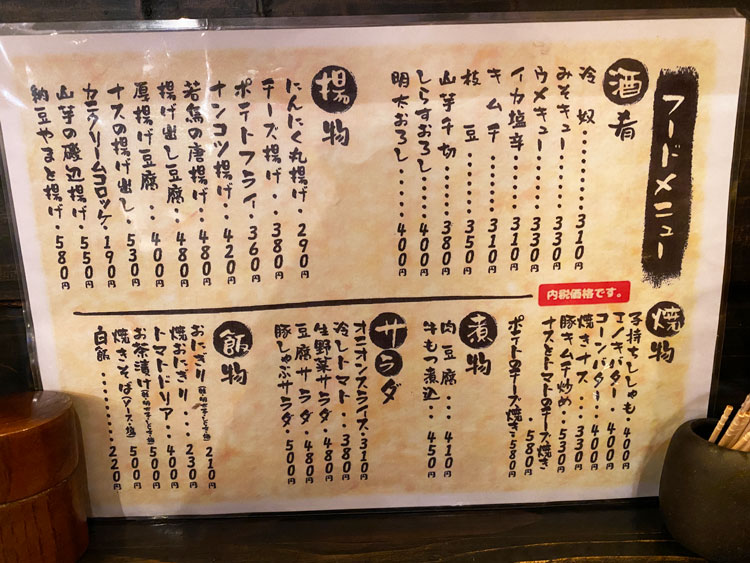 フードメニュー
酒肴
冷奴・・・・・・・・310円
みそキュー・・・・・・330円
ウメキュー・・・・・・330円
イカ塩辛・・・・・・310円
キムチ・・・・・・・310円
枝豆・・・・・・・350円
山芋千切・・・・・380円
しらすおろし・・・・400円
明太おろし・・・・・400円
揚物
にんにく丸揚げ・290円
チーズ揚げ・・・380円
ポテトフライ・360円
ナンコツ揚げ・420円
若鶏の唐揚げ・480円
揚げ出し豆腐・480円
厚揚げ豆腐・・400円
ナスの揚げ出し・530円
カニクリームコロッケ・190円
山芋の磯辺揚げ・550円
納豆やまと揚げ・580円
内税価格です。
焼物
子持ちししゃも・400円
エノキバター・400円
コーンバター・400円
焼きナス・・・330円
豚キムチ炒め・530円
ナスとトマトのチーズ焼き・580円
ポテトのチーズ焼き・580円
煮物
肉豆腐・・・410円
牛もつ煮込・・450円
サラダ
オニオンスライス・310円
冷しトマト・・380円
生野菜サラダ・480円
豆腐サラダ・480円
豚しゃぶサラダ・500円
飯物
おにぎり・210円
焼おにぎり・・230円
トマトドリア・400円
お茶漬け・500円
焼きそば(ソース・塩)・500円
白飯・・・・・・・・220円